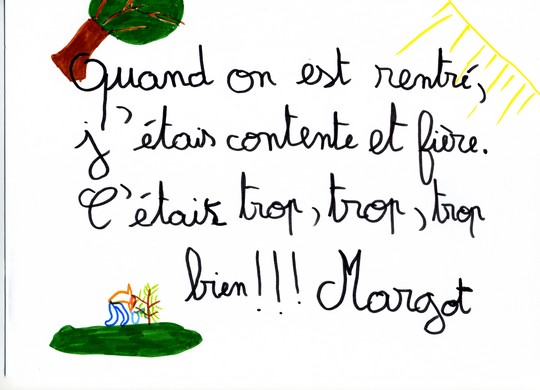 Quand on est rentré,
j'étais contente et fière.
C'était trop, trop, trop
bien!!! Margot